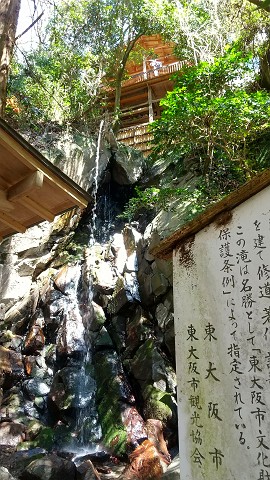 を建て修道
この滝は名勝として「東大阪市文化財
保護条例」によって指定されている。
東大阪市
東大阪市観光協会